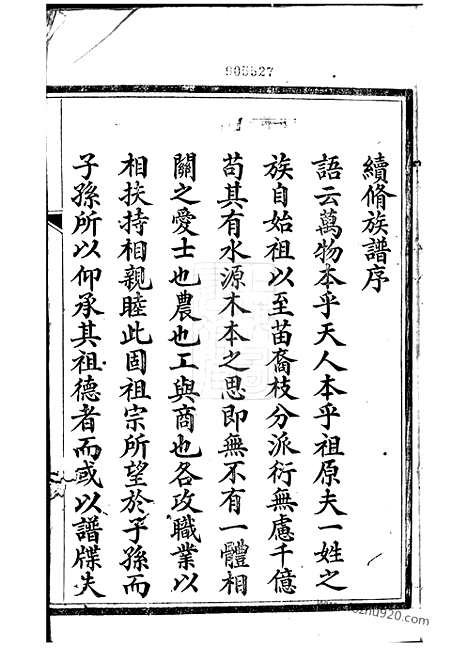 905527
續脩族譜序
語云萬物本乎天人本乎祖原夫一姓之
族自始祖以至苗裔枝分派衍無慮千億
苟其有水源木本之思即無不有一體相
關之愛士也農也工與商也各攻職業以
相扶持相親睦此固祖宗所望於子孫而
子孫所以仰承其祖德者而或以譜牒失